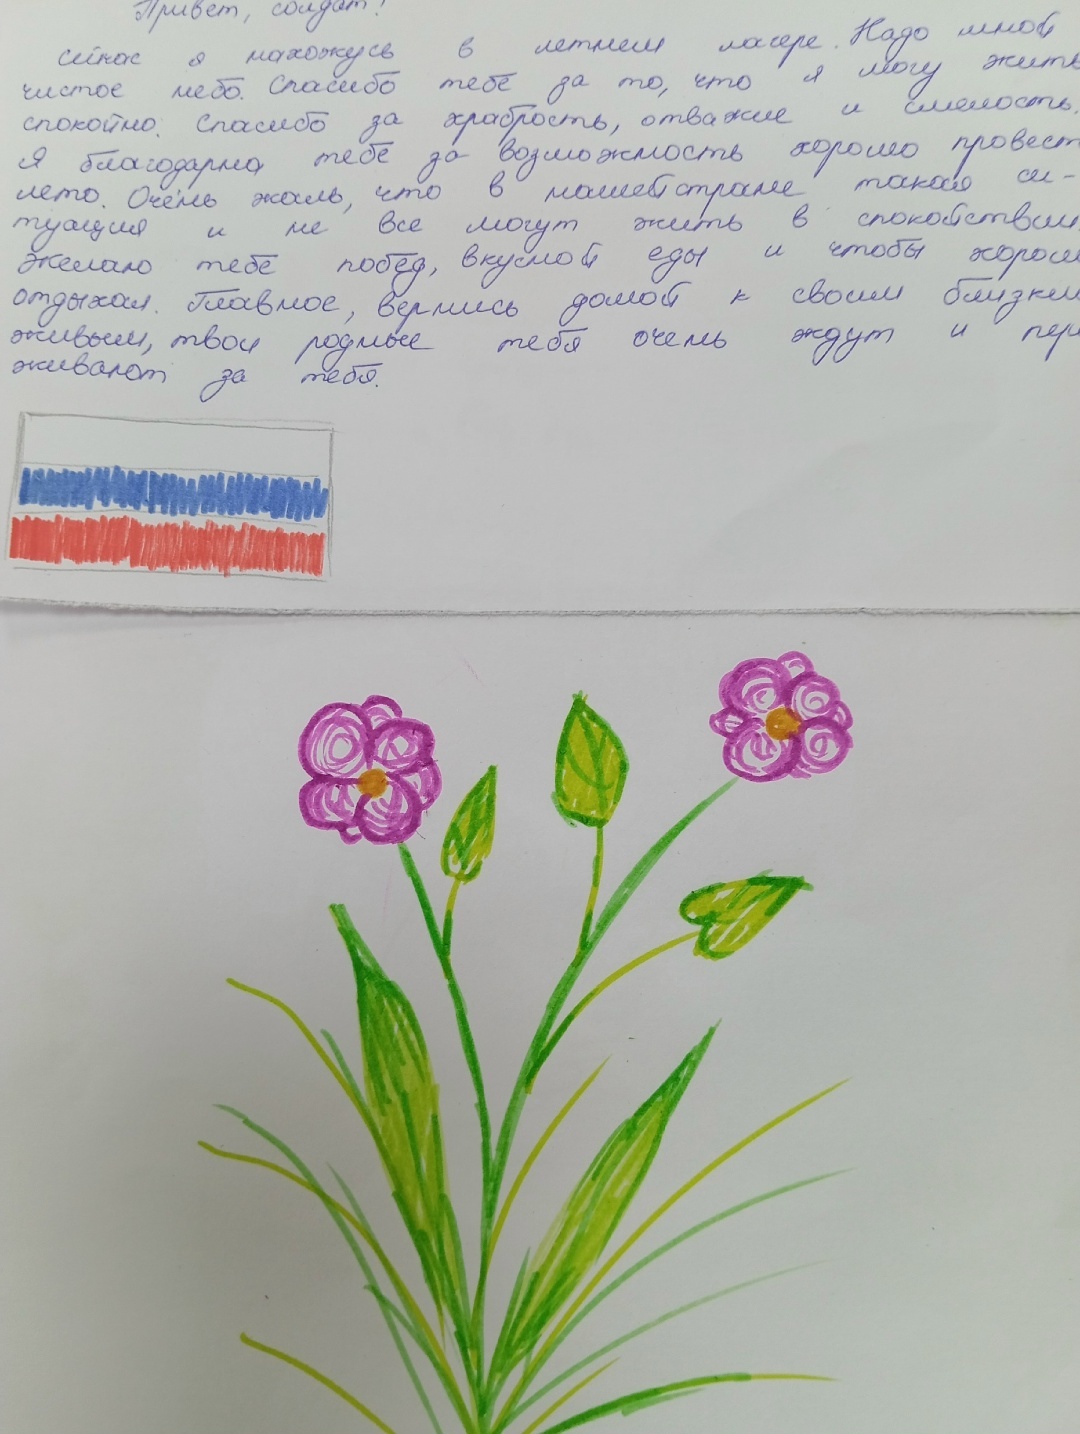 Привет, солдат!
Сейчас я нахожусь в летнем лагере. Надо мной
чистое небо. Спасибо тебе за то, что я могу жить
спокойно. Спасибо за храбрость, отважие и смелость.
Я благодарна тебе за возможность хорошо провест
лето. Очень жаль, что в нашей стране такая си-
туация и не все могут жить в спокойствии.
Желаю тебе побед, вкусной еды и чтобы хорошо
отдыхал. Главное, вернись домой к своим близким
живым, твои родные тебя очень ждут и пере
живают за тебя.